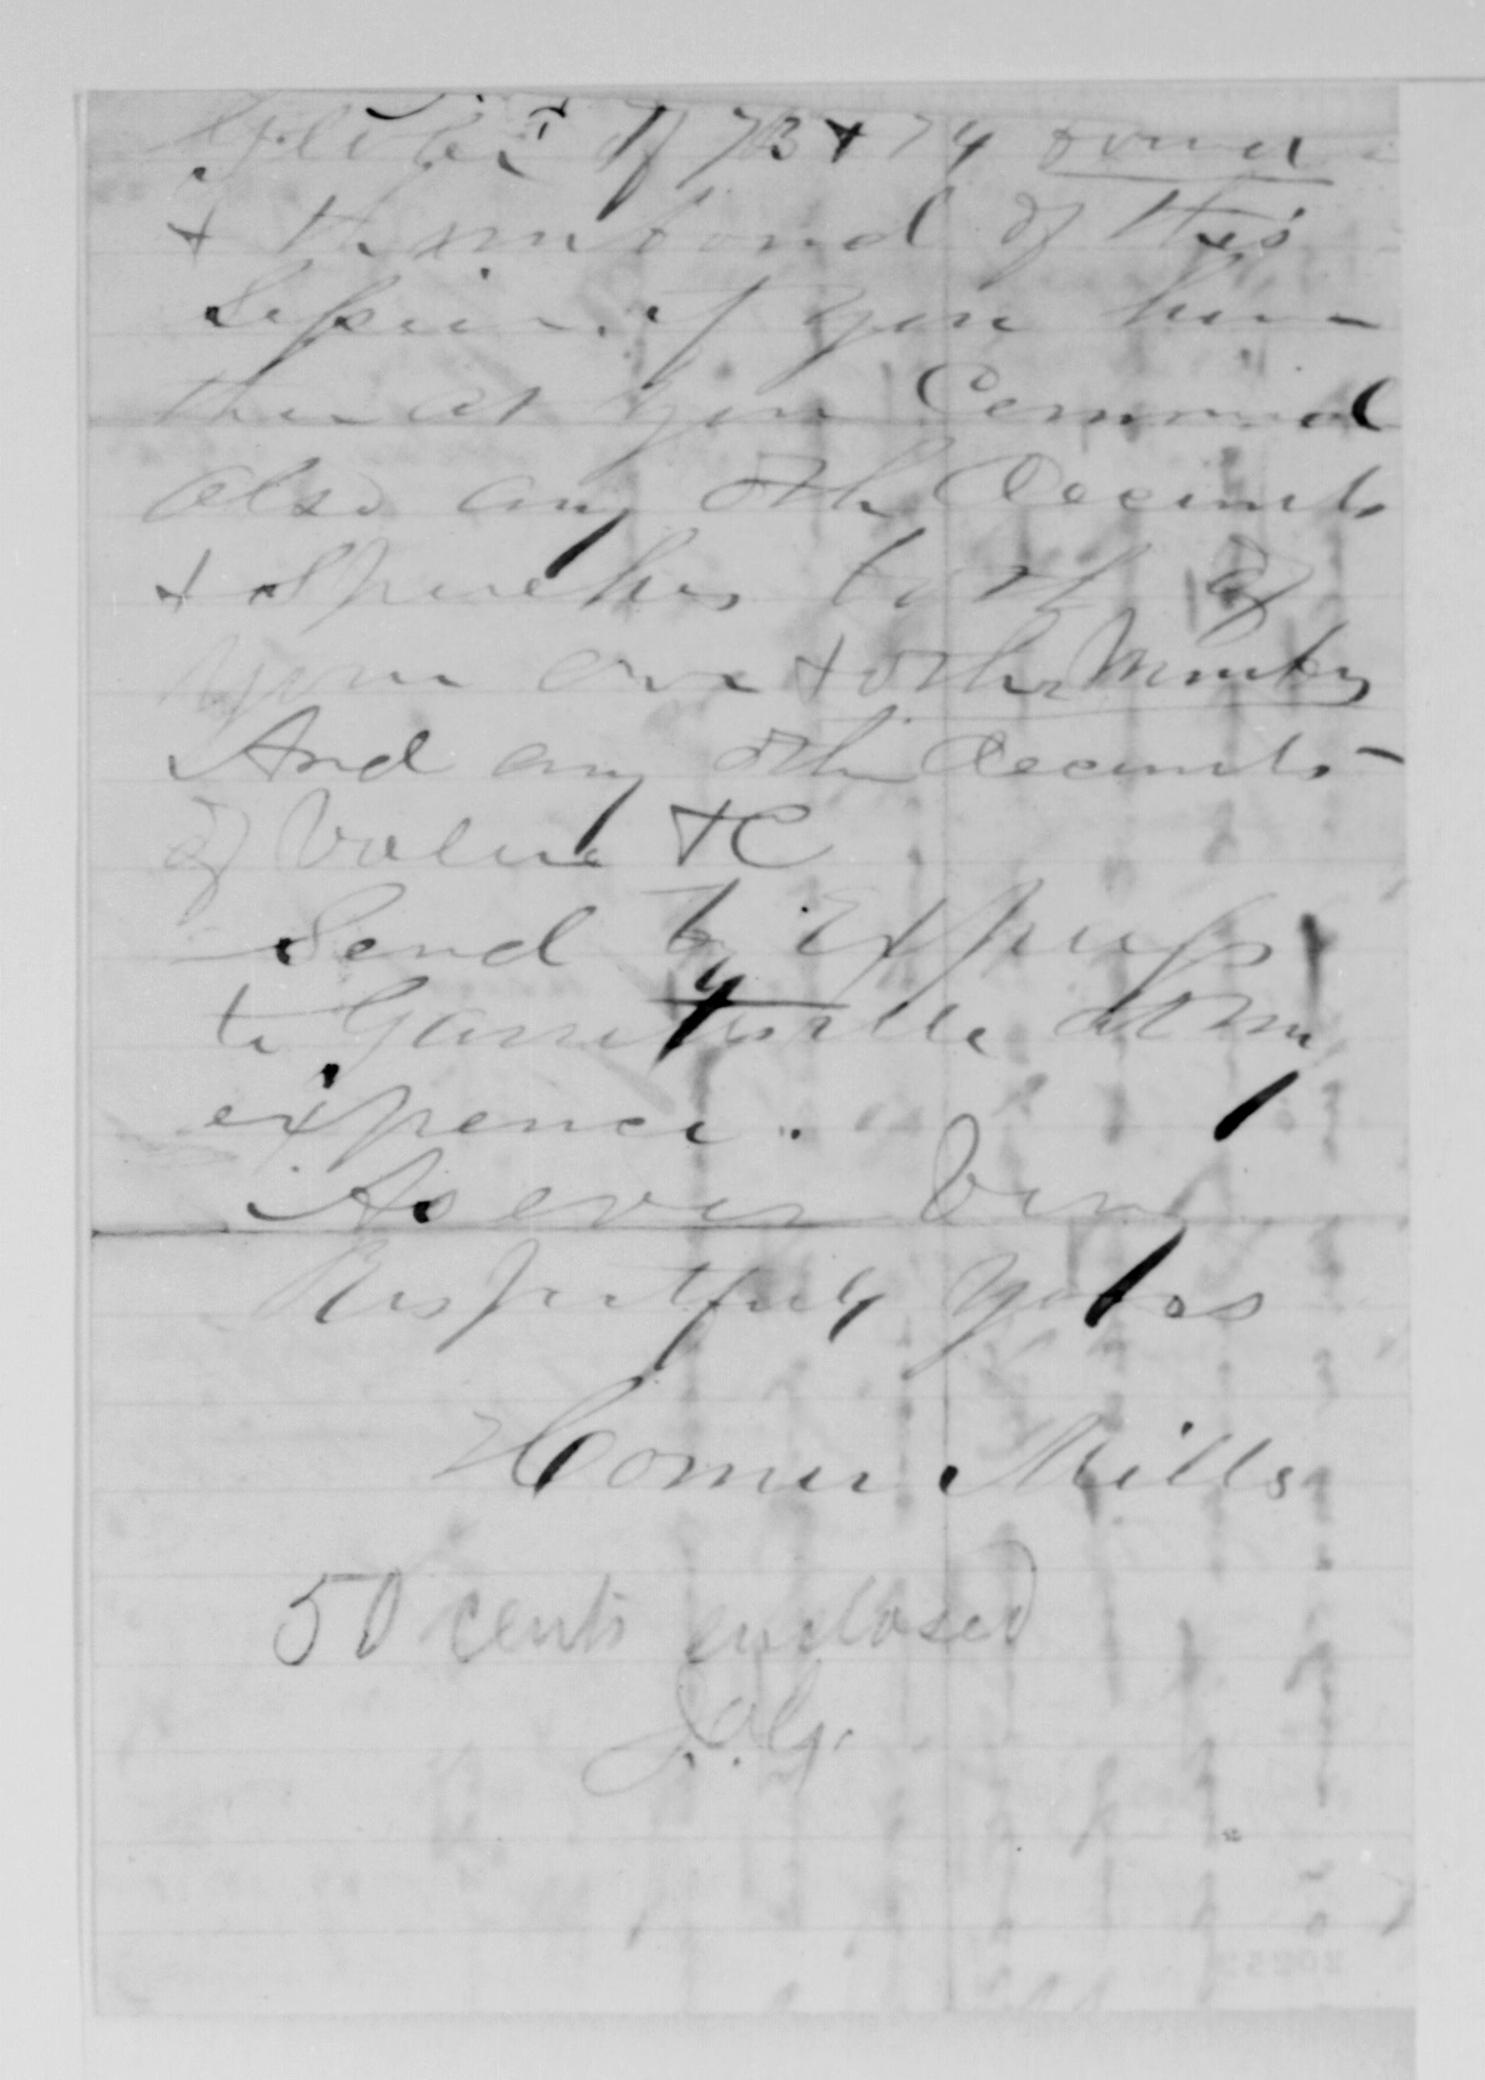 Globes of 73 & 74 bound
& the unbound of this
Session if you have
them at your Command
also any other Documents
& Speeches both of
your own & other Members
And any other Documents
of Value &C
Send by Express
to Garrettsville at my
expence.
As ever Very
Respectfully yours
Homer Mills
50 cents enclosed
J.A.G.